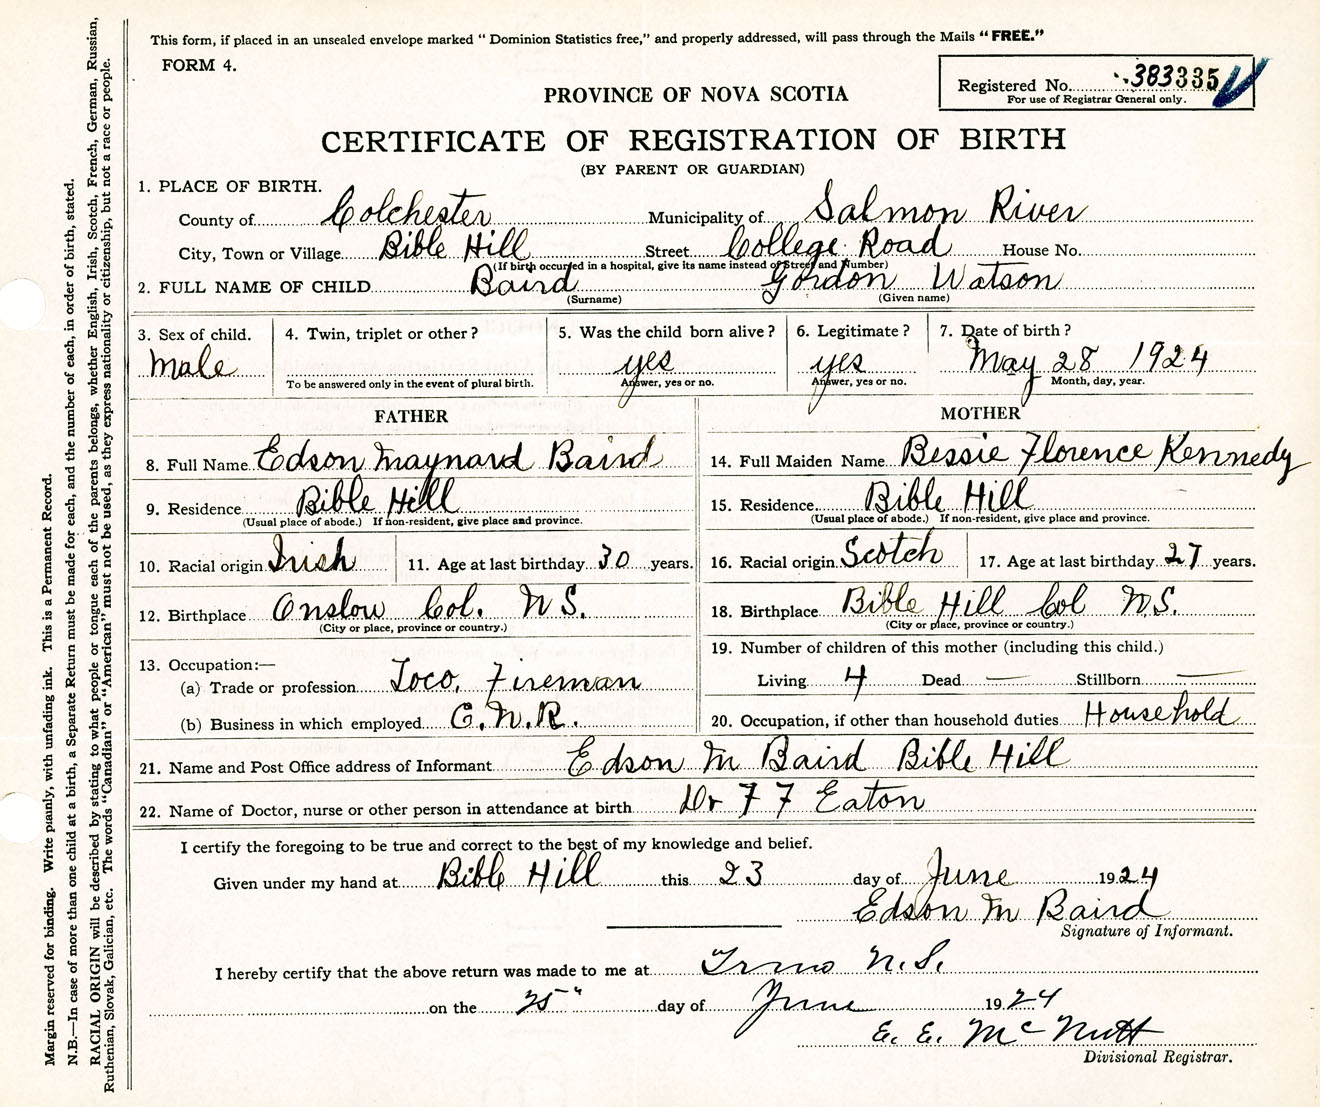 This form, if placed in an unsealed envelope marked " Dominion Statistics free," and properly addressed, will pass through the Mails "FREE."
FORM 4.
Registered No. 383335
For use of Registrar General only.
PROVINCE OF NOVA SCOTIA
CERTIFICATE OF REGISTRATION OF BIRTH
(BY PARENT OR GUARDIAN)
1. PLACE OF BIRTH.
County of Colchester Municipality of Salmon River
City, Town or Village Bible Hill Street College Road House No.
(If birth occurred in a hospital, give its name instead of Street and Number)
2. FULL NAME OF CHILD Baird Gordon Watson
(Surname) (Given name)
3. Sex of child. 4. Twin, triplet or other? 5. Was the child born alive? 6. Legitimate? 7. Date of birth?
Male yes yes May 28 1924
To be answered only in the event of plural birth. Answer, yes or no. Answer, yes or no. Month, day, year.
FATHER
8. Full Name Edson Maynard Baird
9. Residence Bible Hill
(Usual place of abode.) If non-resident, give place and province.
10. Racial origin Irish 11. Age at last birthday 30 years.
12. Birthplace Onslow Col. N S.
(City or place, province or country.)
13. Occupation:—
(a) Trade or profession Loco. Fireman
(b) Business in which employed C.N.R.
MOTHER
14. Full Maiden Name Bessie Florence Kennedy
15. Residence Bible Hill
(Usual place of abode.) If non-resident, give place and province.
16. Racial origin Scotch 17. Age at last birthday 27 years.
18. Birthplace Bible Hill Col N.S.
(City or place, province or country.)
19. Number of children of this mother (including this child.)
Living 4 Dead — Stillborn —
20. Occupation, if other than household duties Household
21. Name and Post Office address of Informant Edson M Baird Bible Hill
22. Name of Doctor, nurse or other person in attendance at birth Dr F F Eaton
I certify the foregoing to be true and correct to the best of my knowledge and belief.
Given under my hand at Bible Hill this 23 day of June 1924
Edson M Baird
Signature of Informant.
I hereby certify that the above return was made to me at Truro N.S.
on the 25" day of June 1924
E. E. McNutt
Divisional Registrar.
Margin reserved for binding. Write plainly, with unfading ink. This is a Permanent Record.
N.B.—In case of more than one child at a birth, a Separate Return must be made for each, and the number of each, in order of birth, stated.
RACIAL ORIGIN will be described by stating to what people or tongue each of the parents belongs, whether English, Irish, Scotch, French, German, Russian,
Ruthenian, Slovak, Galician, etc. The words "Canadian" or "American" must not be used, as they express nationality or citizenship, but not a race or people.